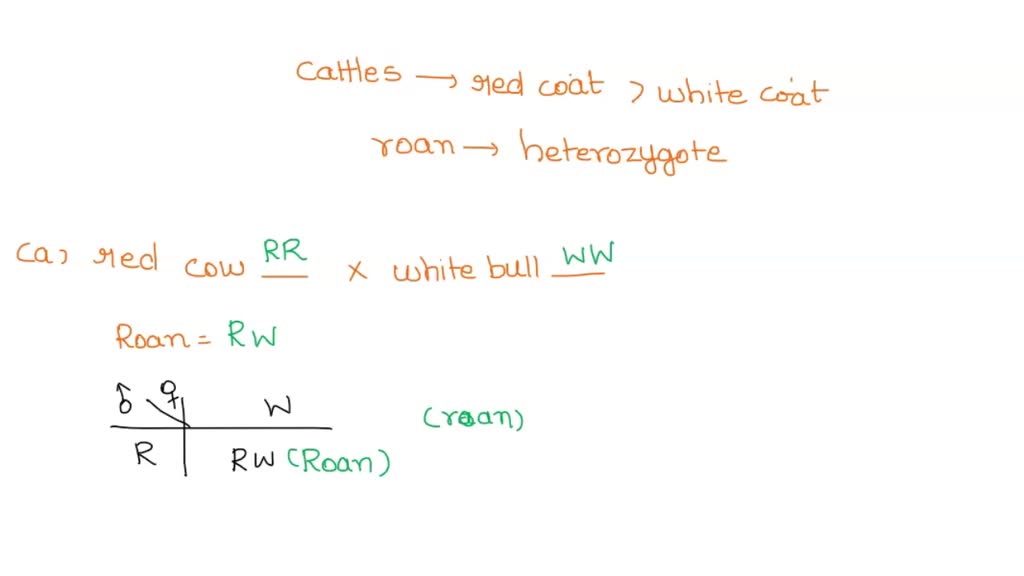 Cattles → red coat > white coat
roan → heterozygote
(a) red cow RR x white bull WW
Roan = RW
♂ ♀ W (roan)
R RW (Roan)